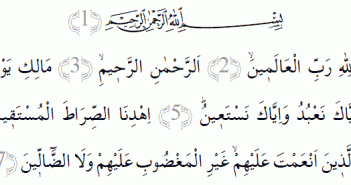 بِسْمِ اللهِ الرَّحْمٰنِ الرَّحِيمِ ﴿1﴾
لِلّٰهِ رَبِّ الْعَالَمِينَۙ ﴿2﴾ اَلرَّحْمٰنِ الرَّحِيمِۙ ﴿3﴾ مَالِكِ يَوْ
يَّاكَ نَعْبُدُ وَاِيَّاكَ نَسْتَعِينُۜ ﴿5﴾ اِهْدِنَا الصِّرَاطَ الْمُسْتَقِي
الَّذِينَ اَنْعَمْتَ عَلَيْهِمْۙ غَيْرِ الْمَغْضُوبِ عَلَيْهِمْ وَلَا الضَّٓالِّينَ ﴿7